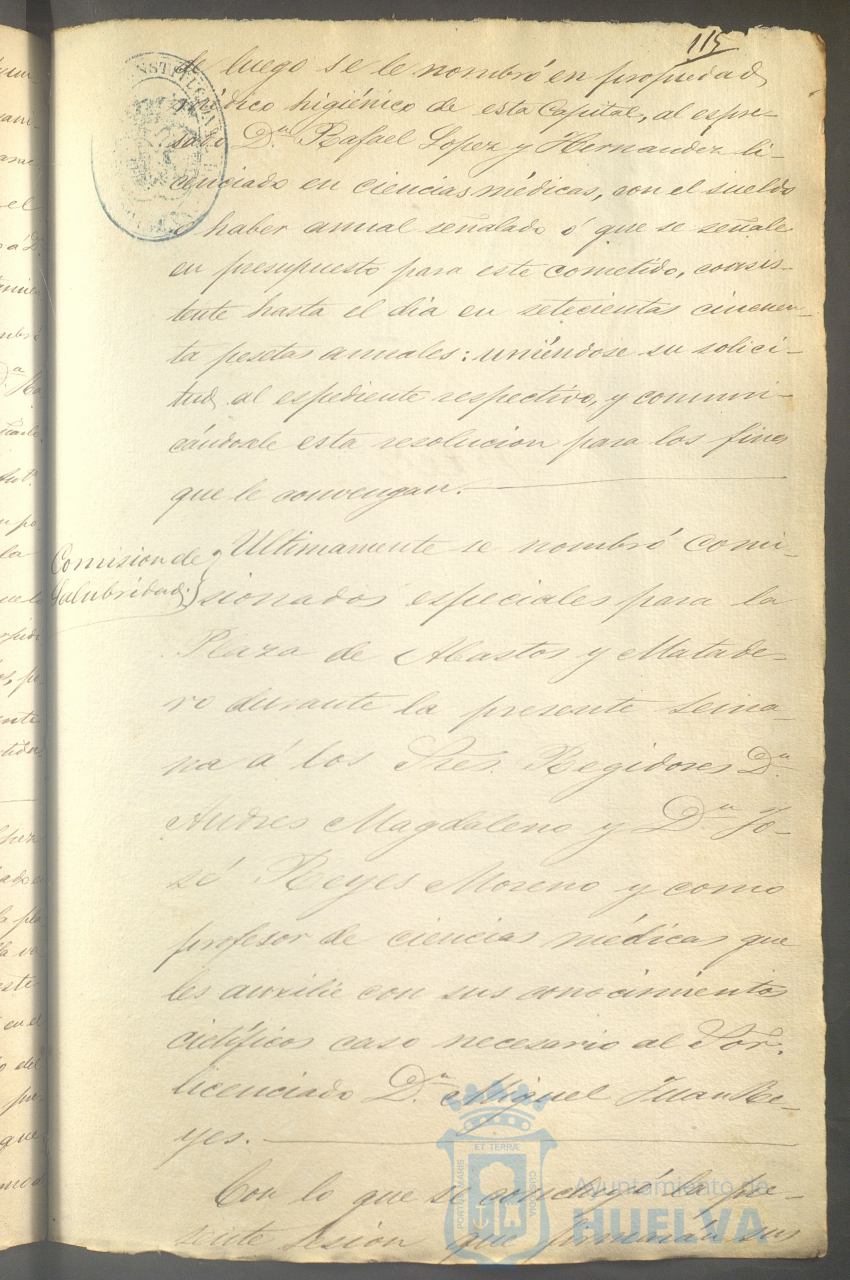 115
de luego se le nombró en propiedad
médico higiénico de esta Capital, al espre-
sado D.n Rafael Lopez y Hernandez li-
cenciado en ciencias médicas, con el sueldo
ó haber anual señalado ó que se señale
en presupuesto para este cometido, consis-
tente hasta el dia en setecientas cincuen-
ta pesetas anuales: uniéndose su solici-
tud al espediente respectivo, y comuni-
cándosele esta resolucion para los fines
que le convengan.
Comision de
Salubridad.
Ultimamente se nombró comi-
sionados especiales para la
Plaza de Abastos y Matade-
ro durante la presente sema-
na á los Sres. Regidores D.n
Andres Magdaleno y D.n Jo-
sé Reyes Moreno y como
profesor de ciencias médicas que
les auxilie con sus conocimientos
cietíficos caso necesario al Sor.
licenciado D.n Miguel Juan Re-
yes.
Con lo que se concluyó la pre-
sente sesion que firmarán sus
Ayuntamiento de
HUELVA